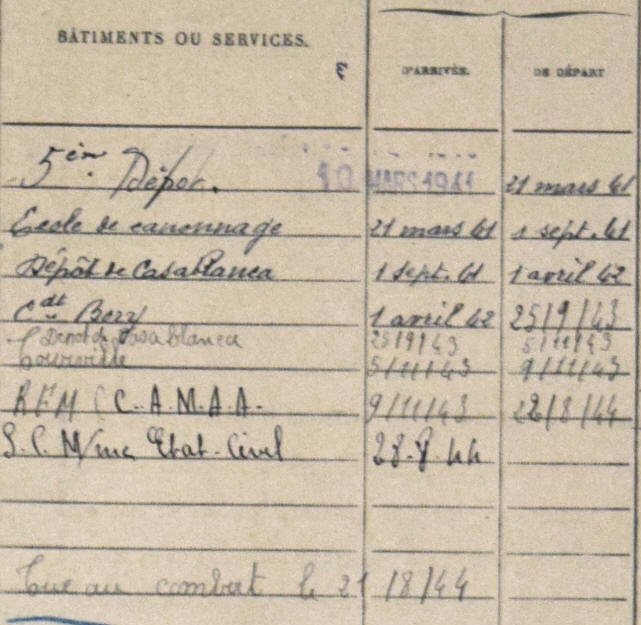 BÂTIMENTS OU SERVICES. D'ARRIVÉE. DE DÉPART
5èm Dépôt. 10 MARS 1941 21 mars 41
Ecole de canonnage 21 mars 41 1 sept. 41
Dépôt de Casablanca 1 sept. 41 1 avril 42
Cdt Bory 1 avril 42 25/9/43
Depot de Casablanca 25/9/43 5/11/43
Tourville 5/11/43 9/11/43
RFM ( C.A.M.A.A. 9/11/43 22/8/44
S.C. M/me Etat-Civil 28.8.44
Tue au combat le 21/8/44